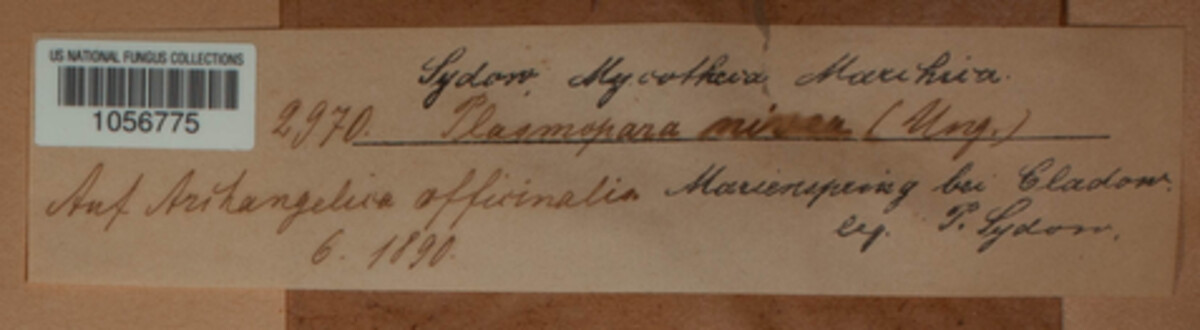 US NATIONAL FUNGUS COLLECTIONS
1056775
Sydow, Mycotheca Marchica.
2970. Plasmopara nivea (Ung.)
Auf Archangelica officinalis Marienspring bei Cladow.
leg. P. Sydow.
6. 1890.